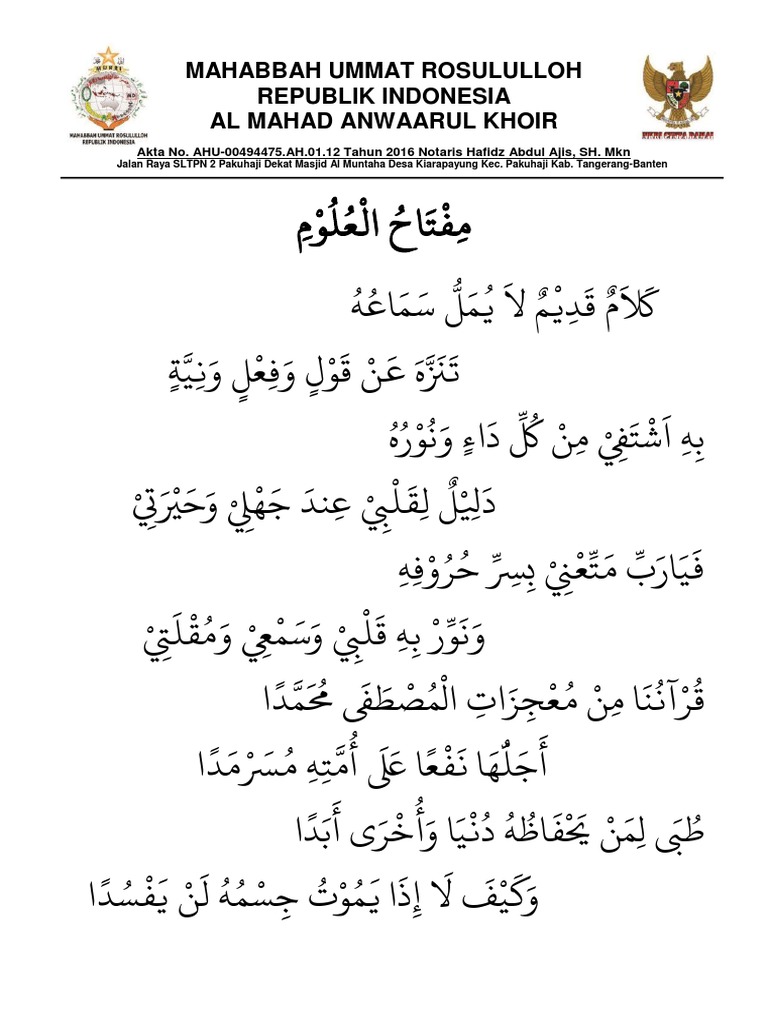 MAHABBAH UMMAT ROSULULLOH
REPUBLIK INDONESIA
AL MAHAD ANWAARUL KHOIR
MAHABBAH UMMAT ROSULULLOH
REPUBLIK INDONESIA
Akta No. AHU-00494475.AH.01.12 Tahun 2016 Notaris Hafidz Abdul Ajis, SH. Mkn
Jalan Raya SLTPN 2 Pakuhaji Dekat Masjid Al Muntaha Desa Kiarapayung Kec. Pakuhaji Kab. Tangerang-Banten
مِفْتَاحُ الْعُلُوْمِ
كَلاَمٌ قَدِيْمٌ لاَ يُمَلُّ سَمَاعُهُ
تَنَزَّهَ عَنْ قَوْلٍ وَفِعْلٍ وَنِيَّةٍ
بِهِ اَشْتَفِيْ مِنْ كُلِّ دَاءٍ وَنُوْرُهُ
دَلِيْلٌ لِقَلْبِيْ عِندَ جَهْلِيْ وَحَيْرَتِيْ
فَيَارَبِّ مَتِّعْنِيْ بِسِرِّ حُرُوْفِهِ
وَنَوِّرْ بِهِ قَلْبِيْ وَسَمْعِيْ وَمُقْلَتِيْ
قُرْآنُنَا مِنْ مُعْجِزَاتِ الْمُصْطَفَى مُحَمَّدًا
أَجَلُّهَا نَفْعًا عَلَى أُمَّتِهِ مُسَرْمَدًا
طُبَى لِمَنْ يَحْفَاظُهُ دُنْيَا وَأُخْرَى أَبَدًا
وَكَيْفَ لَا إِذَا يَمُوْتُ جِسْمُهُ لَنْ يَفْسُدًا